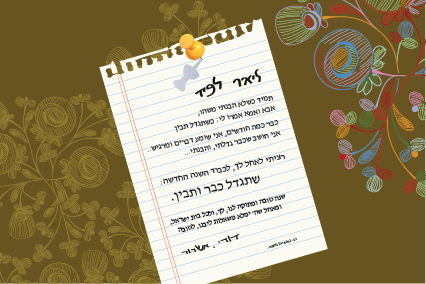 יאיר לפיד
תמיד כשלא הבנתי משהו,
אבא ואמא אמרו לי: כשתגדל תבין
כבר כמה חודשים, אני שומע דברים ומרגיש.
אני חושב שכבר גדלתי, והבנתי...
רציתי לאחל לך, לכבוד השנה החדשה:
שתגדל כבר ותבין.
שנה טובה ומתוקה לנו, לך, ולכל בית ישראל,
ומאחל שה' ימלא משאלות ליבנו, לטובה